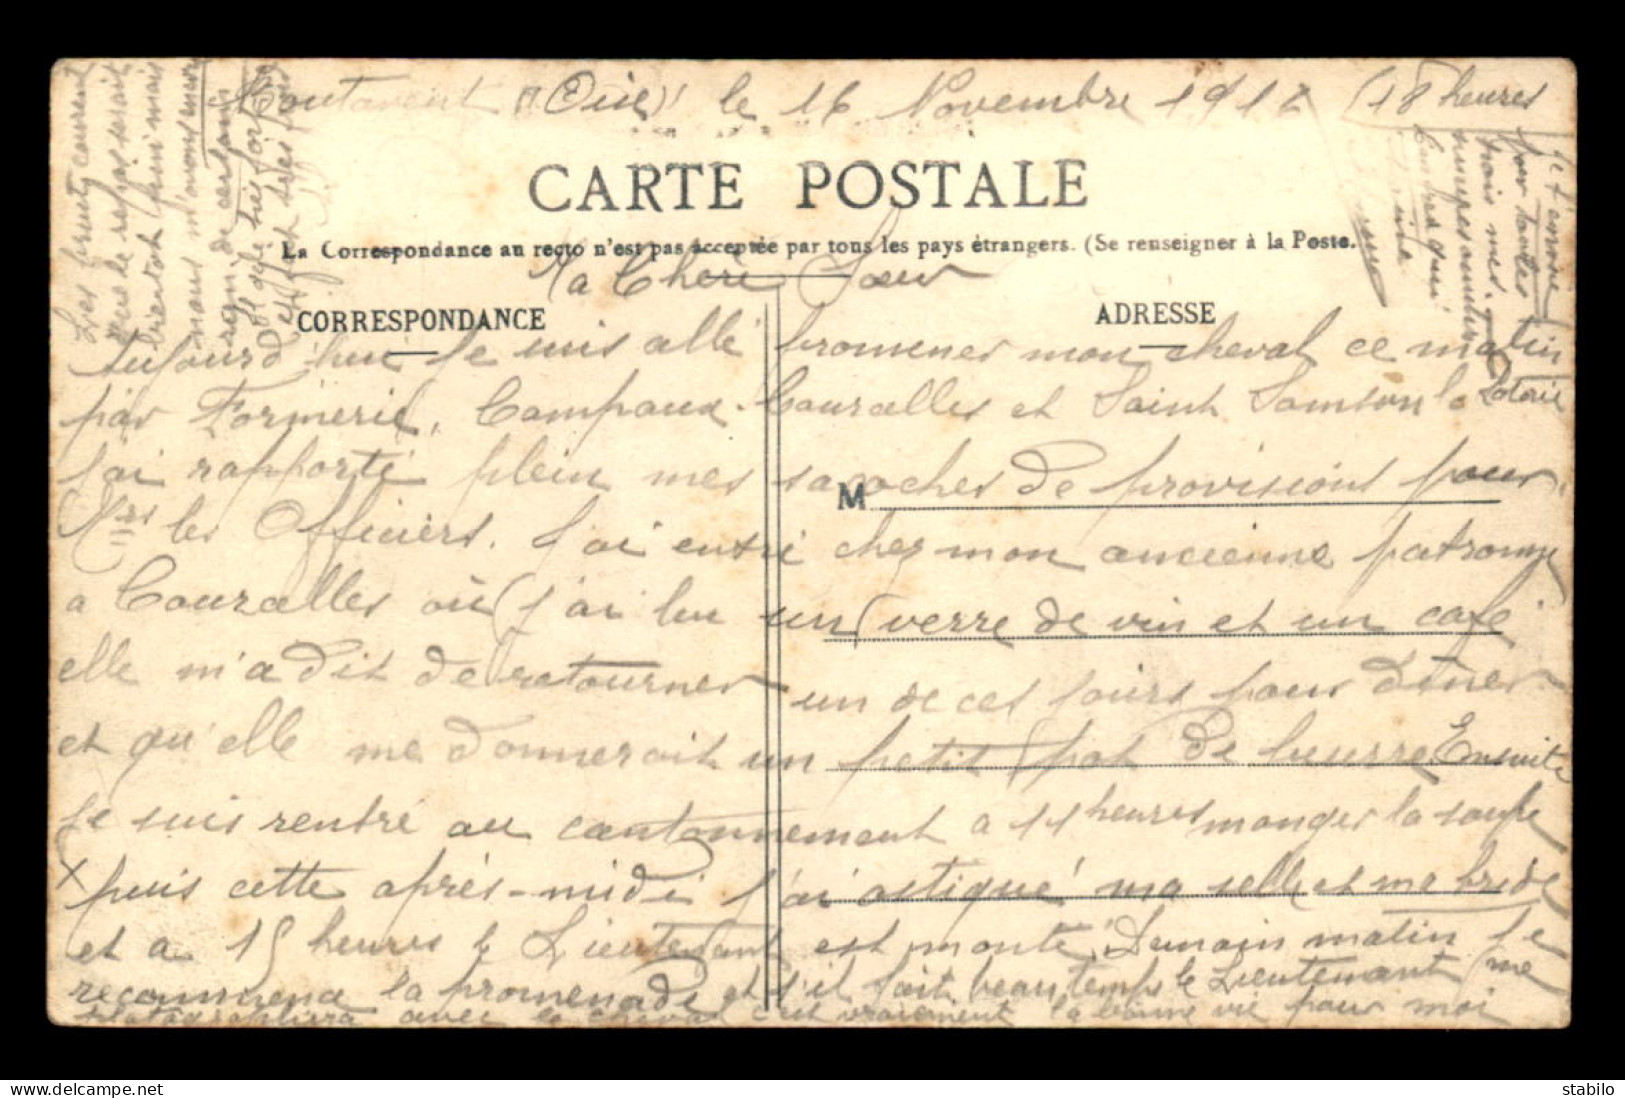 (Oise) le 16 Novembre 191 (18 heures
CARTE POSTALE
La Correspondance au recto n'est pas acceptée par tous les pays étrangers. (Se renseigner à la Poste.
Ma Cheri Sœur
CORRESPONDANCE
ADRESSE
Aujourd'hui je suis allé promener mon cheval ce matin
par Formerie, Campaux. Courcelles et Saint Samson la Poterie
j'ai rapporté plein mes sacoches de provisions pour
M
Mrs les Officiers. J'ai entré chez mon ancienne patronne
a Courcelles où j'ai bu un verre de vin et un café
elle m'a dit de retourner un de ces jours pour dîner
et qu'elle me donnerait un petit pot de beurre Ensuite
je suis rentré au cantonnement a 11 heures manger la soupe
X puis cette après-midi j'ai astiqué ma selle et ma bride
et a 15 heures le Lieutenant est monté. Demain matin je
recommence la promenade et s'il fait beau temps le Lieutenant me
photographiera avec le cheval c'est vraiement la bonne vie pour moi
Les bruits courent
que le repos serait
bientôt fini mais
nous n'avons encore
reçu de certain
Je t'envoie
pour toutes
trois mes